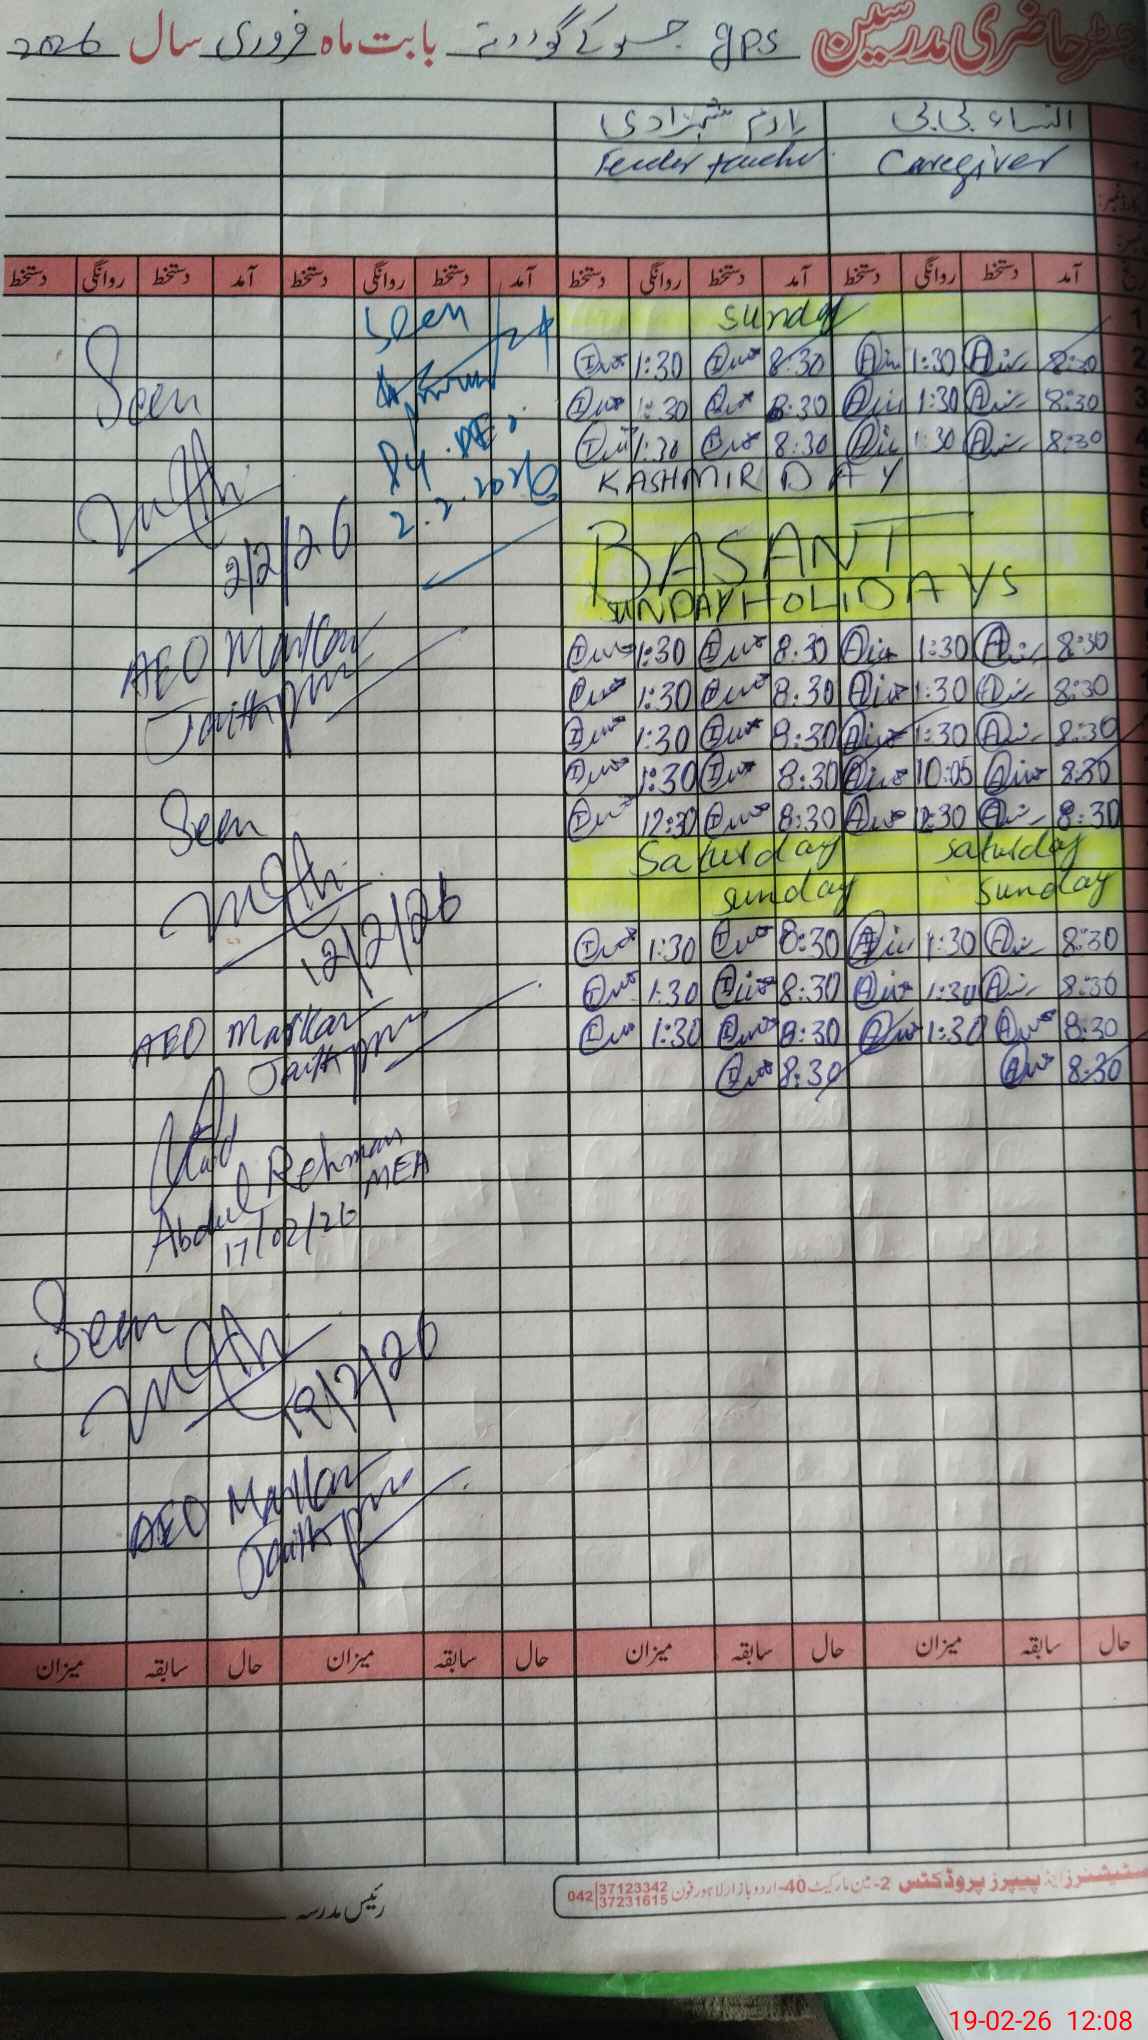 رجسٹر حاضری مدرسین gps جسو کے گوددتہ بابت ماہ فروری سال 2026
النساء بی بی
ارم شہزادی
Caregiver
Tender teacher
آمد دستخط روانگی دستخط آمد دستخط روانگی دستخط آمد دستخط روانگی دستخط آمد دستخط روانگی دستخط
sunday
8:30 1:30 8:30 1:30
8:30 1:30 8:30 1:30
8:30 1:30 8:30 1:30
KASHMIR DAY
BASANT
SUNDAY HOLIDAYS
8:30 1:30 8:30 1:30
8:30 1:30 8:30 1:30
8:30 1:30 8:30 1:30
8:30 10:05 8:30 1:30
8:30 12:30 8:30 12:30
saturday Saturday
sunday sunday
8:30 1:30 8:30 1:30
8:30 1:30 8:30 1:30
8:30 1:30 8:30 1:30
8:30 8:30
seen
Dy. DEO
2.2.2026
Seen
2/2/26
AEO Markaz
Jaithpur
Seen
12/2/26
AEO Markaz
Jaithpur
Abdul Rehman
MEA
17/02/26
Seen
19/2/26
AEO Markaz
Jaithpur
حال سابقہ میزان حال سابقہ میزان حال سابقہ میزان حال سابقہ میزان
سٹیشنرز اینڈ پیپرز پروڈکٹس 2-مین مارکیٹ 40-اردو بازار لاہور فون 042 37123342 37231615
رئیس مدرسہ
19-02-26 12:08